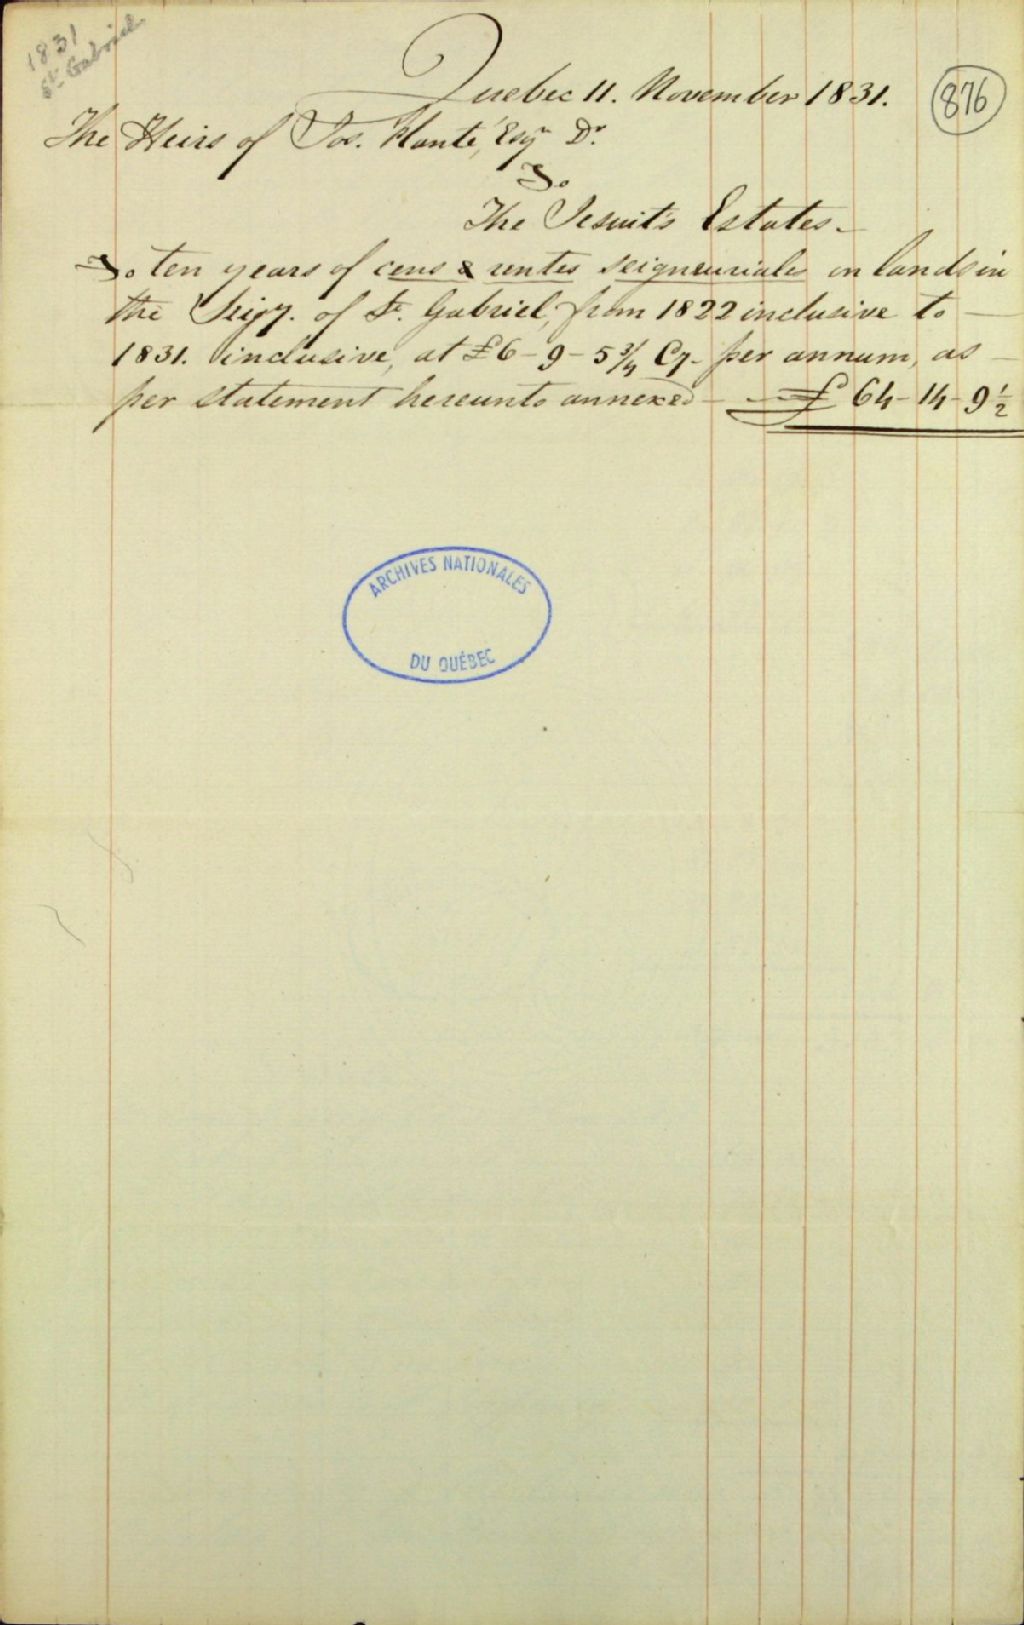 1831
St. Gabriel
Quebec 11. November 1831.
876
The Heirs of Jos. Planté, Esqr Dr.
To
The Jesuit's Estates.
To ten years of cens & rentes seigneuriales on lands in
the Seigy. of St. Gabriel, from 1822 inclusive to
1831. inclusive, at £6-9-5¾ Cy. per annum, as
per statement hereunto annexed - £ 64-14-9½
ARCHIVES NATIONALES
DU QUÉBEC